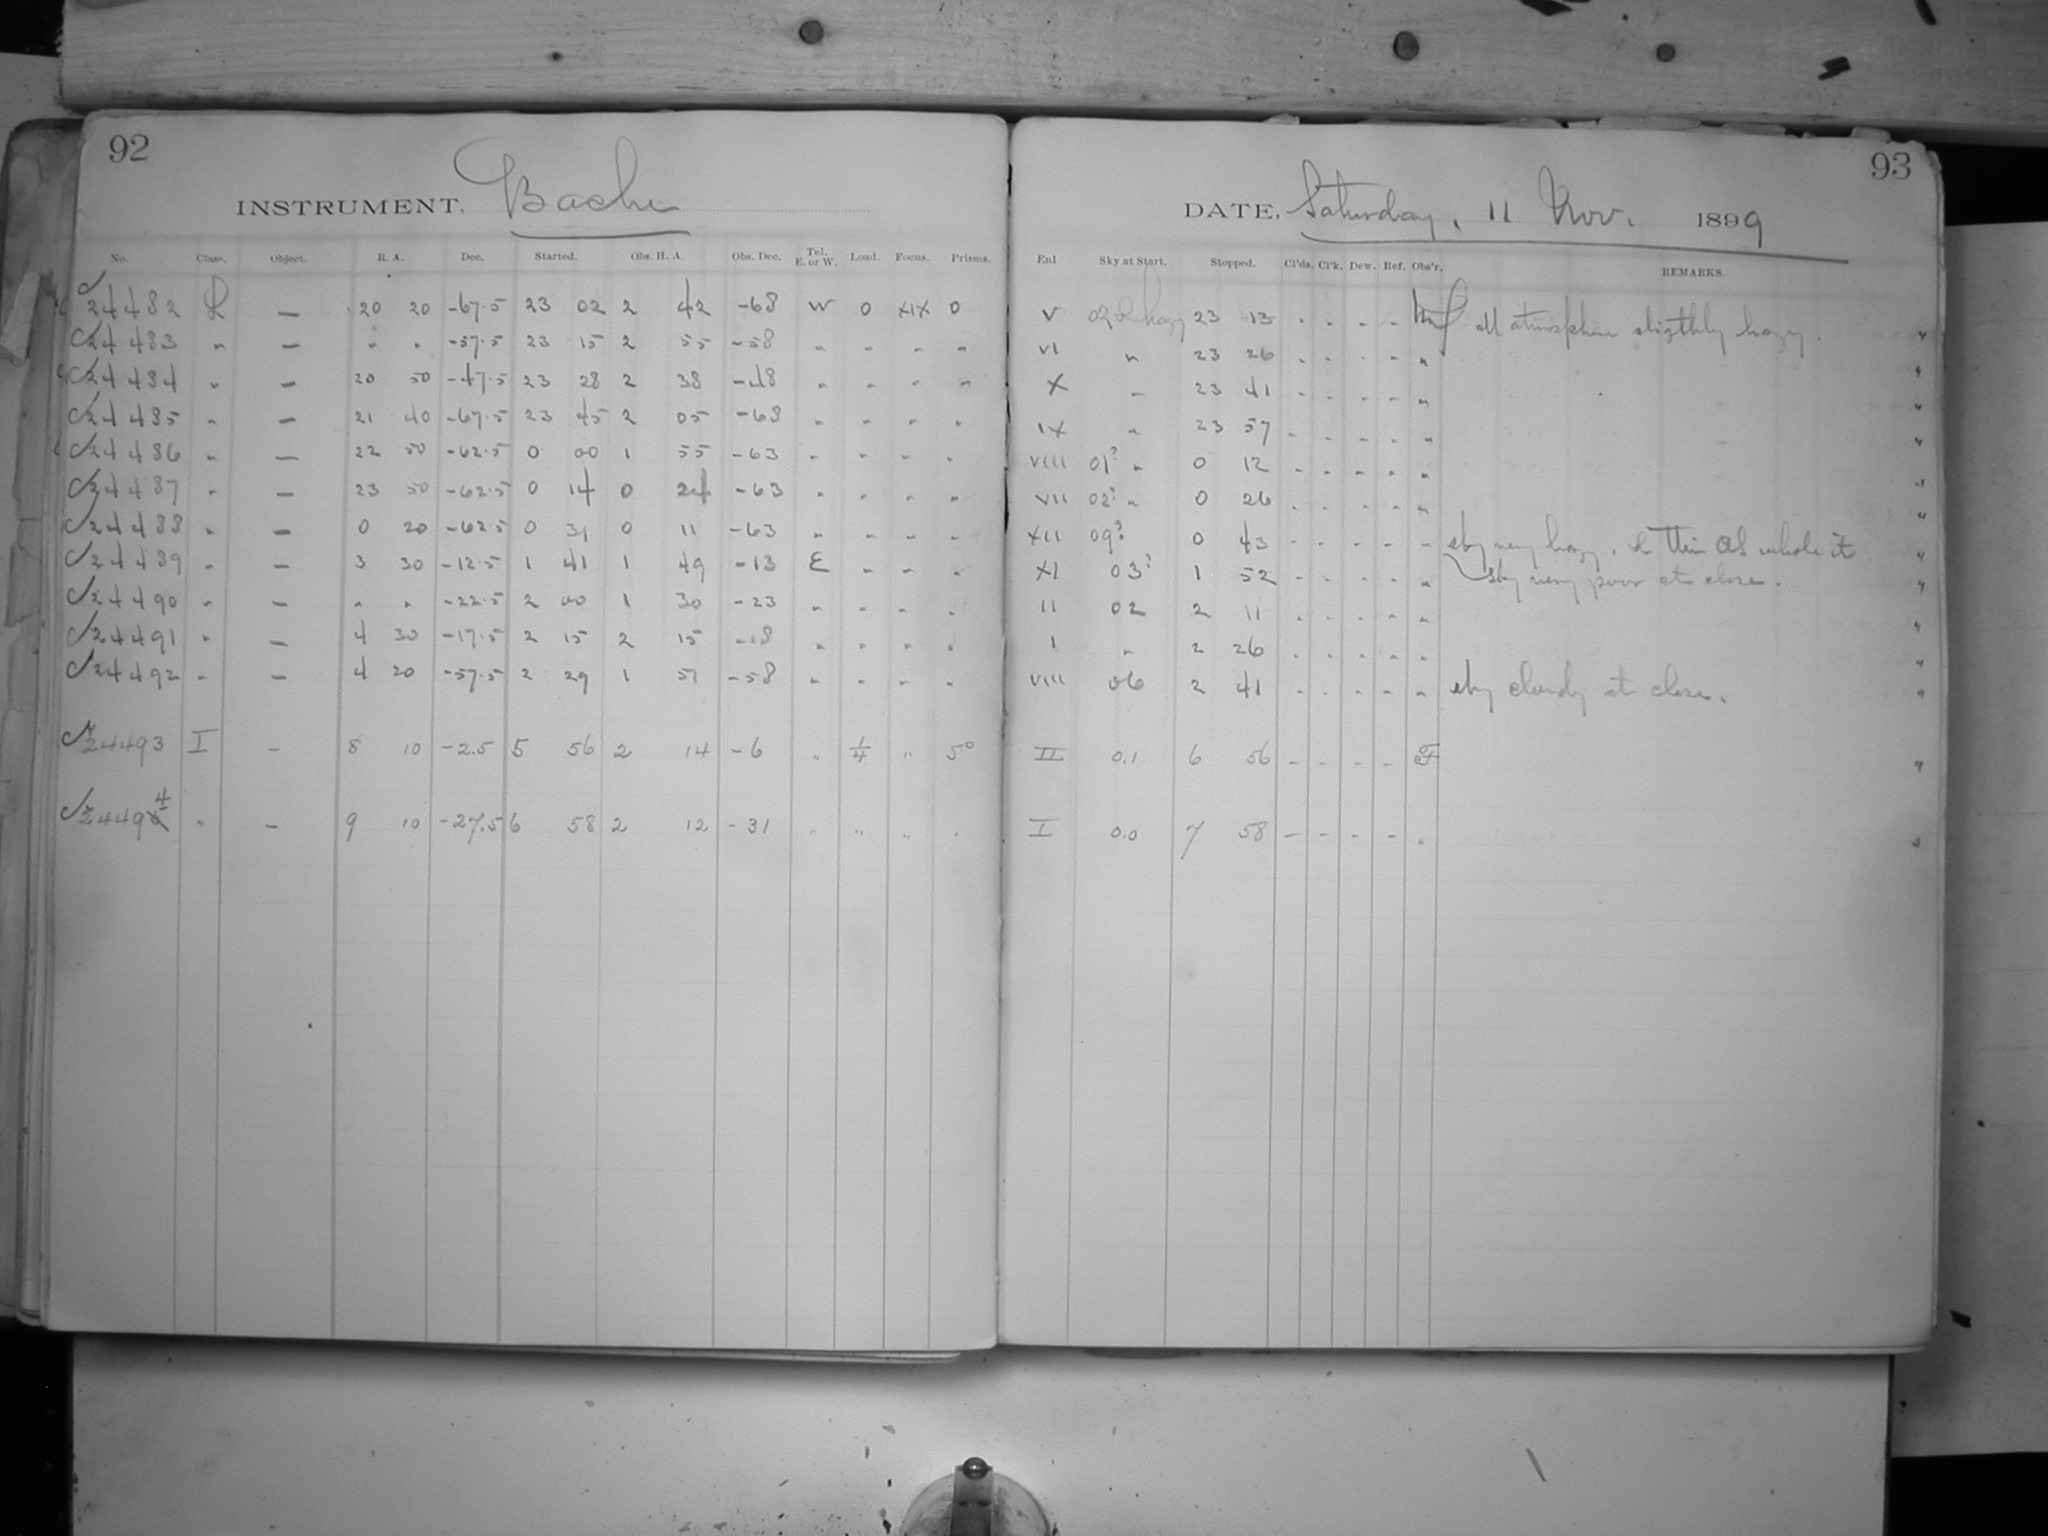 92
INSTRUMENT. Bache
No. Class. Object. R. A. Dec. Started. Obs. H. A. Obs. Dec. Tel. E. or W. Load. Focus. Prisms.
24482 R — 20 20 -67.5 23 02 2 42 -68 W 0 XIX 0
24483 " — " " -57.5 23 15 2 55 -58 " " " "
24484 " — 20 50 -47.5 23 28 2 38 -48 " " " "
24485 " — 21 40 -67.5 23 45 2 05 -68 " " " "
24486 " — 22 50 -62.5 0 00 1 55 -63 " " " "
24487 " — 23 50 -62.5 0 14 0 24 -63 " " " "
24488 " — 0 20 -62.5 0 31 0 11 -63 " " " "
24489 " — 3 30 -12.5 1 41 1 49 -13 E " " "
24490 " — " " -22.5 2 00 1 30 -23 " " " "
24491 " — 4 30 -17.5 2 15 2 15 -18 " " " "
24492 " — 4 20 -57.5 2 29 1 51 -58 " " " "
24493 I - 8 10 -2.5 5 56 2 14 -6 " 1/4 " 5°
24494 " - 9 10 -27.5 6 58 2 12 -31 " " " "
93
DATE, Saturday, 11 Nov. 1899
Enl Sky at Start. Stopped. Cl'ds. Cl'k. Dew. Ref. Obs'r. REMARKS.
V 02 & hazy 23 13 - - - - all atmosphere sligthly hazy. "
VI " 23 26 - - - - " "
X " 23 41 - - - - " "
IX " 23 57 - - - - " "
VIII 01? " 0 12 - - - - " "
VII 02? " 0 26 - - - - " "
XII 09? 0 43 - - - - " sky very hazy, & thin whole it "
XI 03? 1 52 - - - - " sky very poor at close. "
II 02 2 11 - - - - " "
I " 2 26 - - - - " "
VIII 06 2 41 - - - - " sky cloudy at close. "
II 0.1 6 56 - - - - F "
I 0.0 7 58 - - - - " "